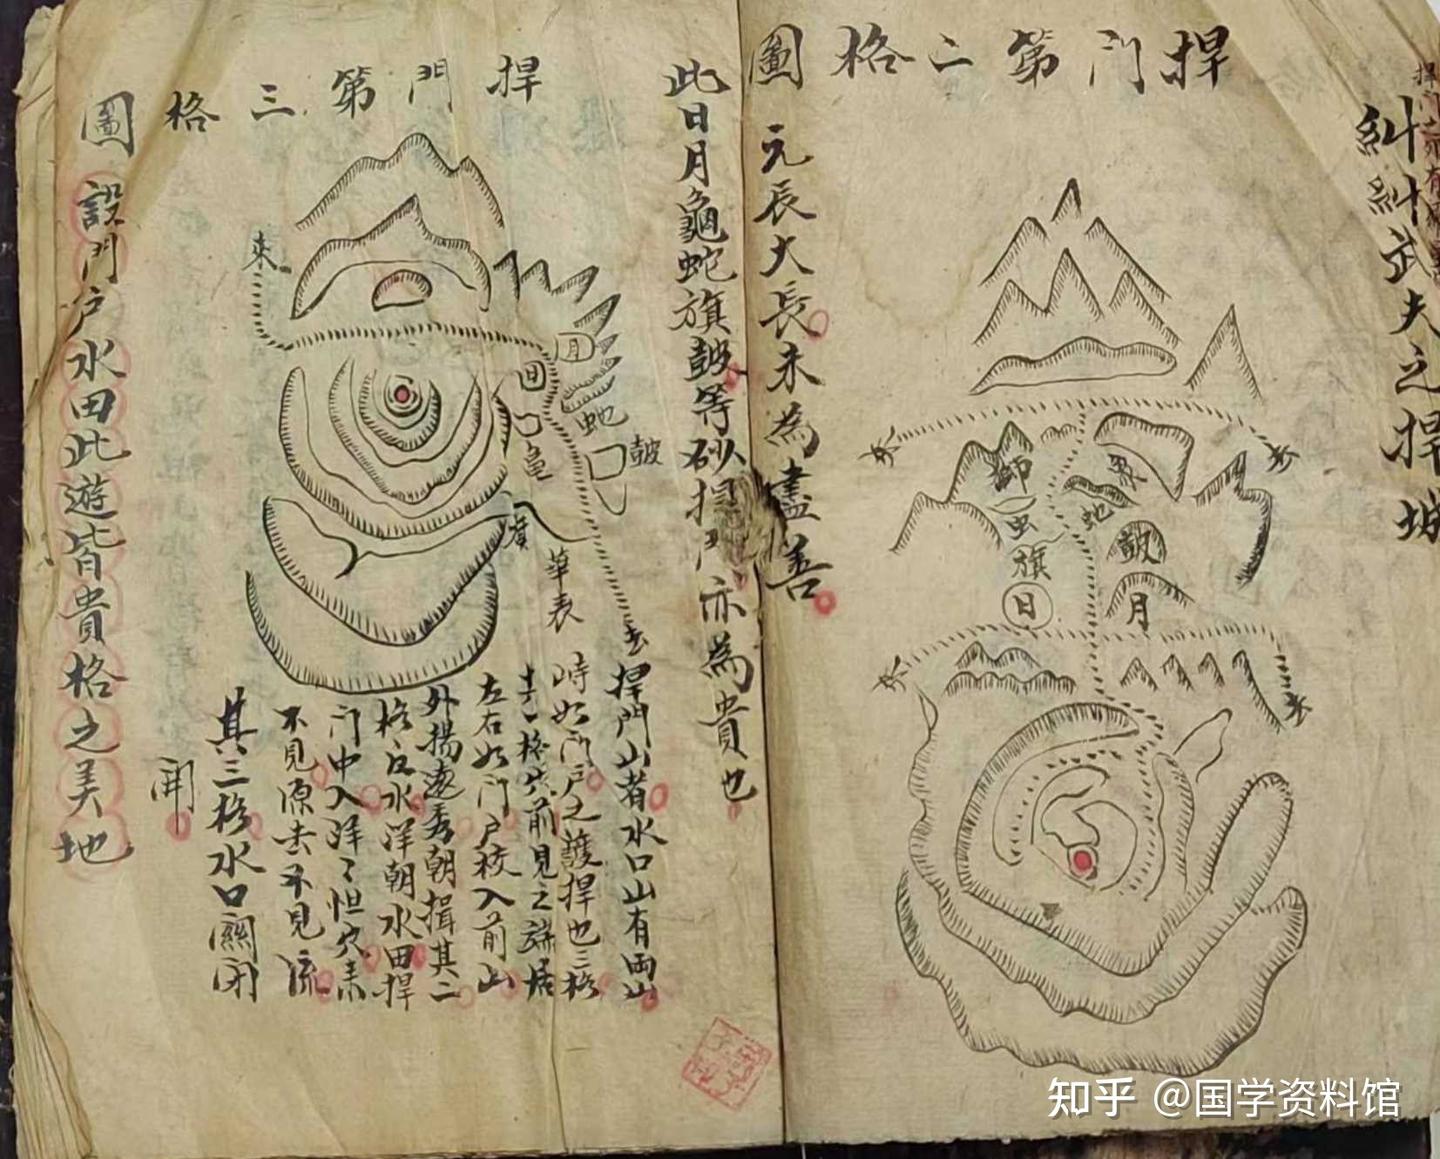 糾糾武夫之捍城
捍門第二格圖
獅
象
虫
蛇
旗
鼓
日
月
元辰大長未為盡善
此日月龜蛇旗鼓等砂捍門亦為貴也
捍門第三格圖
來
月
蛇
鼓
龜
華表
去
捍門山者水口山有両山
時如門戶之護捍也三格
格穴前見之端居
左右如門戶校入前山
外揚遠秀朝揖其二
格水洋朝水田捍
門中入洋〻怛穴
不見源去不見流
其三格水口關闭
設門戶水田此遊皆貴格之美地
知乎 @国学资料馆